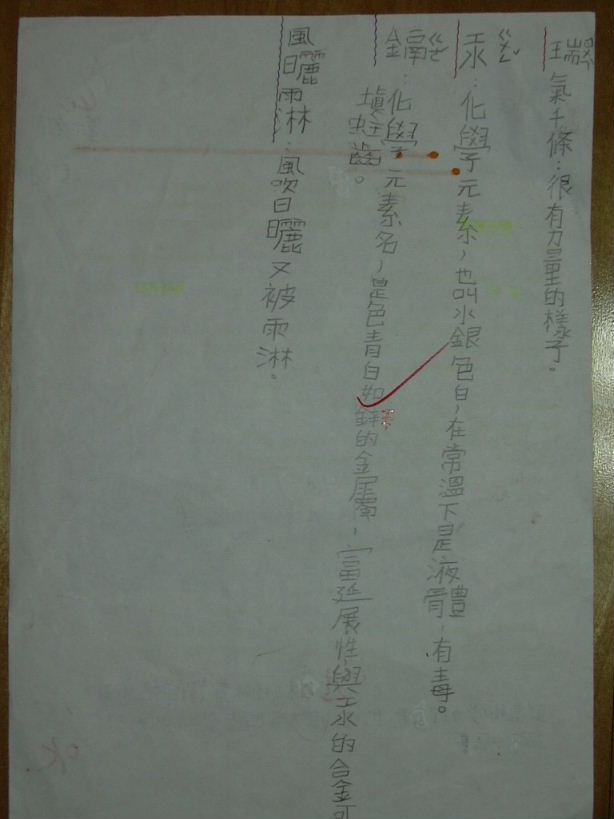 瑞氣千條:很有力量的樣子。
汞ㄍㄨㄥˇ:化學元素,也叫水銀色白,在常溫下是液體,有毒。
鎘ㄍㄜˊ:化學元素名,是色青白如鋅的金屬,富延展性與汞的合金可
填蛀齒。
風日曬雨淋:風吹日曬又被雨淋。